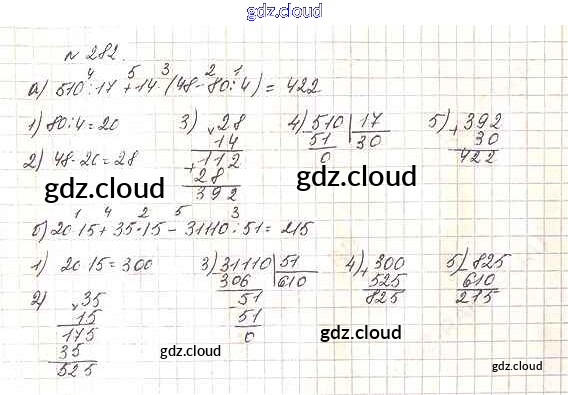 gdz.cloud
№ 282.
а) 510 : 17 + 14 · (48 - 80 : 4) = 422
1) 80 : 4 = 20
2) 48 - 20 = 28
3) × 28
14
+ 112
28
392
4) 510 | 17
51 | 30
0
5) + 392
30
422
gdz.cloud
gdz.cloud
б) 20 · 15 + 35 · 15 - 31110 : 51 = 215
1) 20 · 15 = 300
2) × 35
15
175
35
525
3) 31110 | 51
306 | 610
- 51
51
0
4) + 300
525
825
5) - 825
610
215
gdz.cloud
gdz.cloud
gdz.cloud